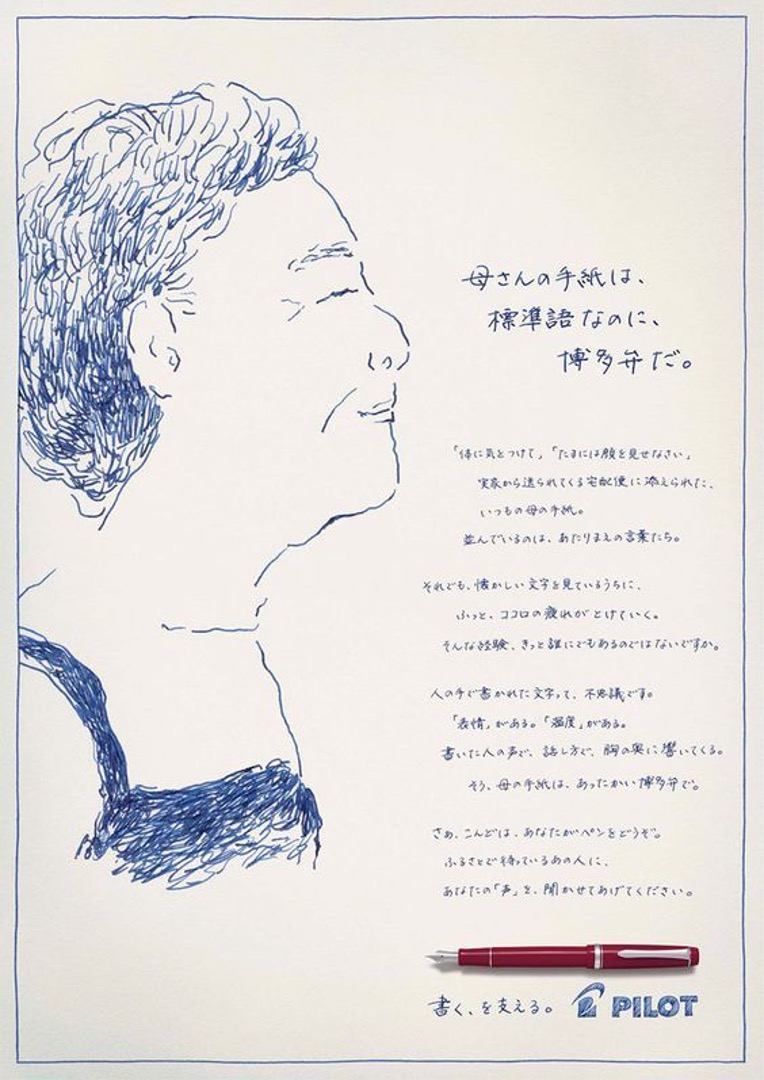 母さんの手紙は、
標準語なのに、
博多弁だ。
「体に気をつけて」「たまには顔を見せなさい」
実家から送られてくる宅配便に添えられた、
いつもの母の手紙。
並んでいるのは、あたりまえの言葉たち。
それでも、懐かしい文字を見ているうちに、
ふっと、ココロの疲れがとけていく。
そんな経験、きっと誰にでもあるのではないですか。
人の手で書かれた文字って、不思議です。
「表情」がある。「温度」がある。
書いた人の声で、話し方で、胸の奥に響いてくる。
そう、母の手紙は、あったかい博多弁で。
さあ、こんどは、あなたがペンをどうぞ。
ふるさとで待っているあの人に、
あなたの「声」を、聞かせてあげてください。
書く、を支える。 PILOT